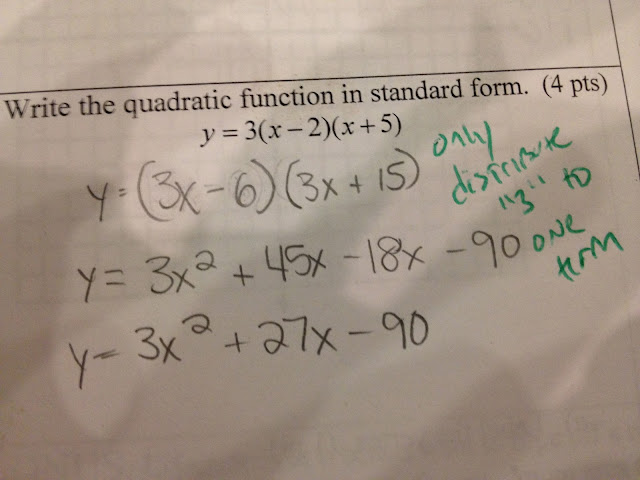 Write the quadratic function in standard form. (4 pts)
y = 3(x – 2)(x + 5)
y = (3x – 6)(3x + 15)
y = 3x² + 45x – 18x – 90
y = 3x² + 27x – 90
only
distribute
"3" to
one
term